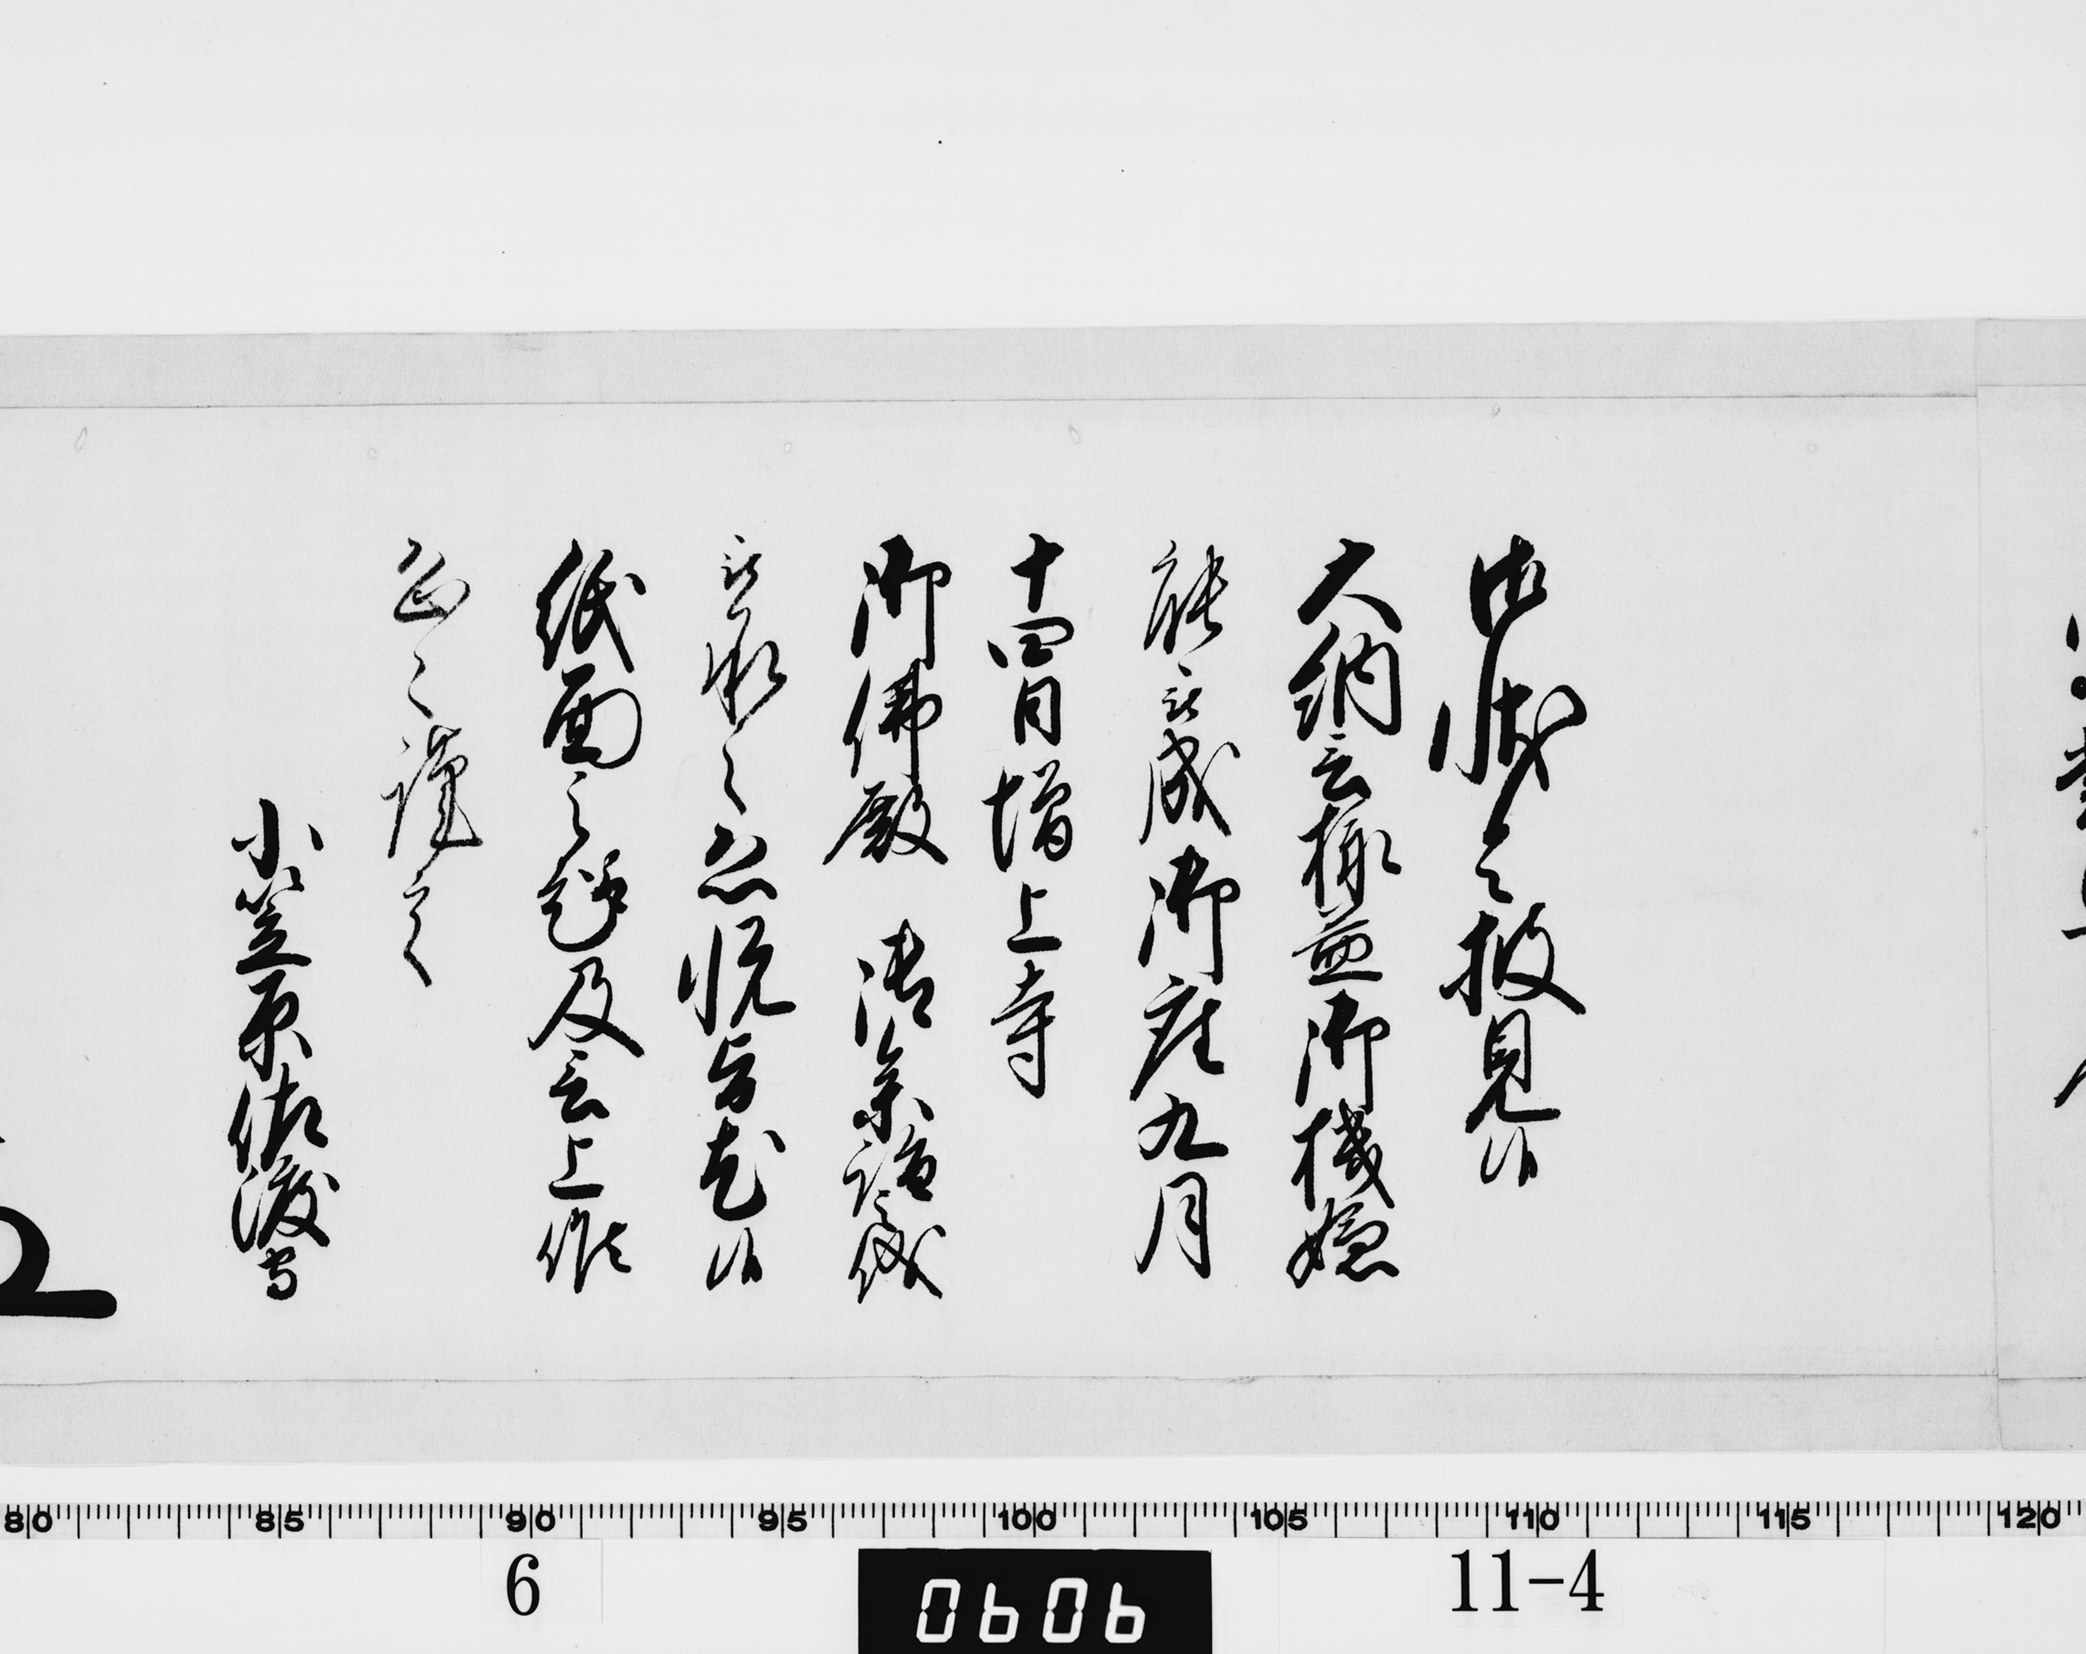 御状令披見候
大納言様益御機嫌
能被成御座九月
十四日増上寺
御佛殿 御参詣儀
被承之恐悦旨尤候
紙面之趣及言上候
恐々謹言
小笠原佐渡守
80 85 90 95 100 105 110 115 120
6
0606
11-4